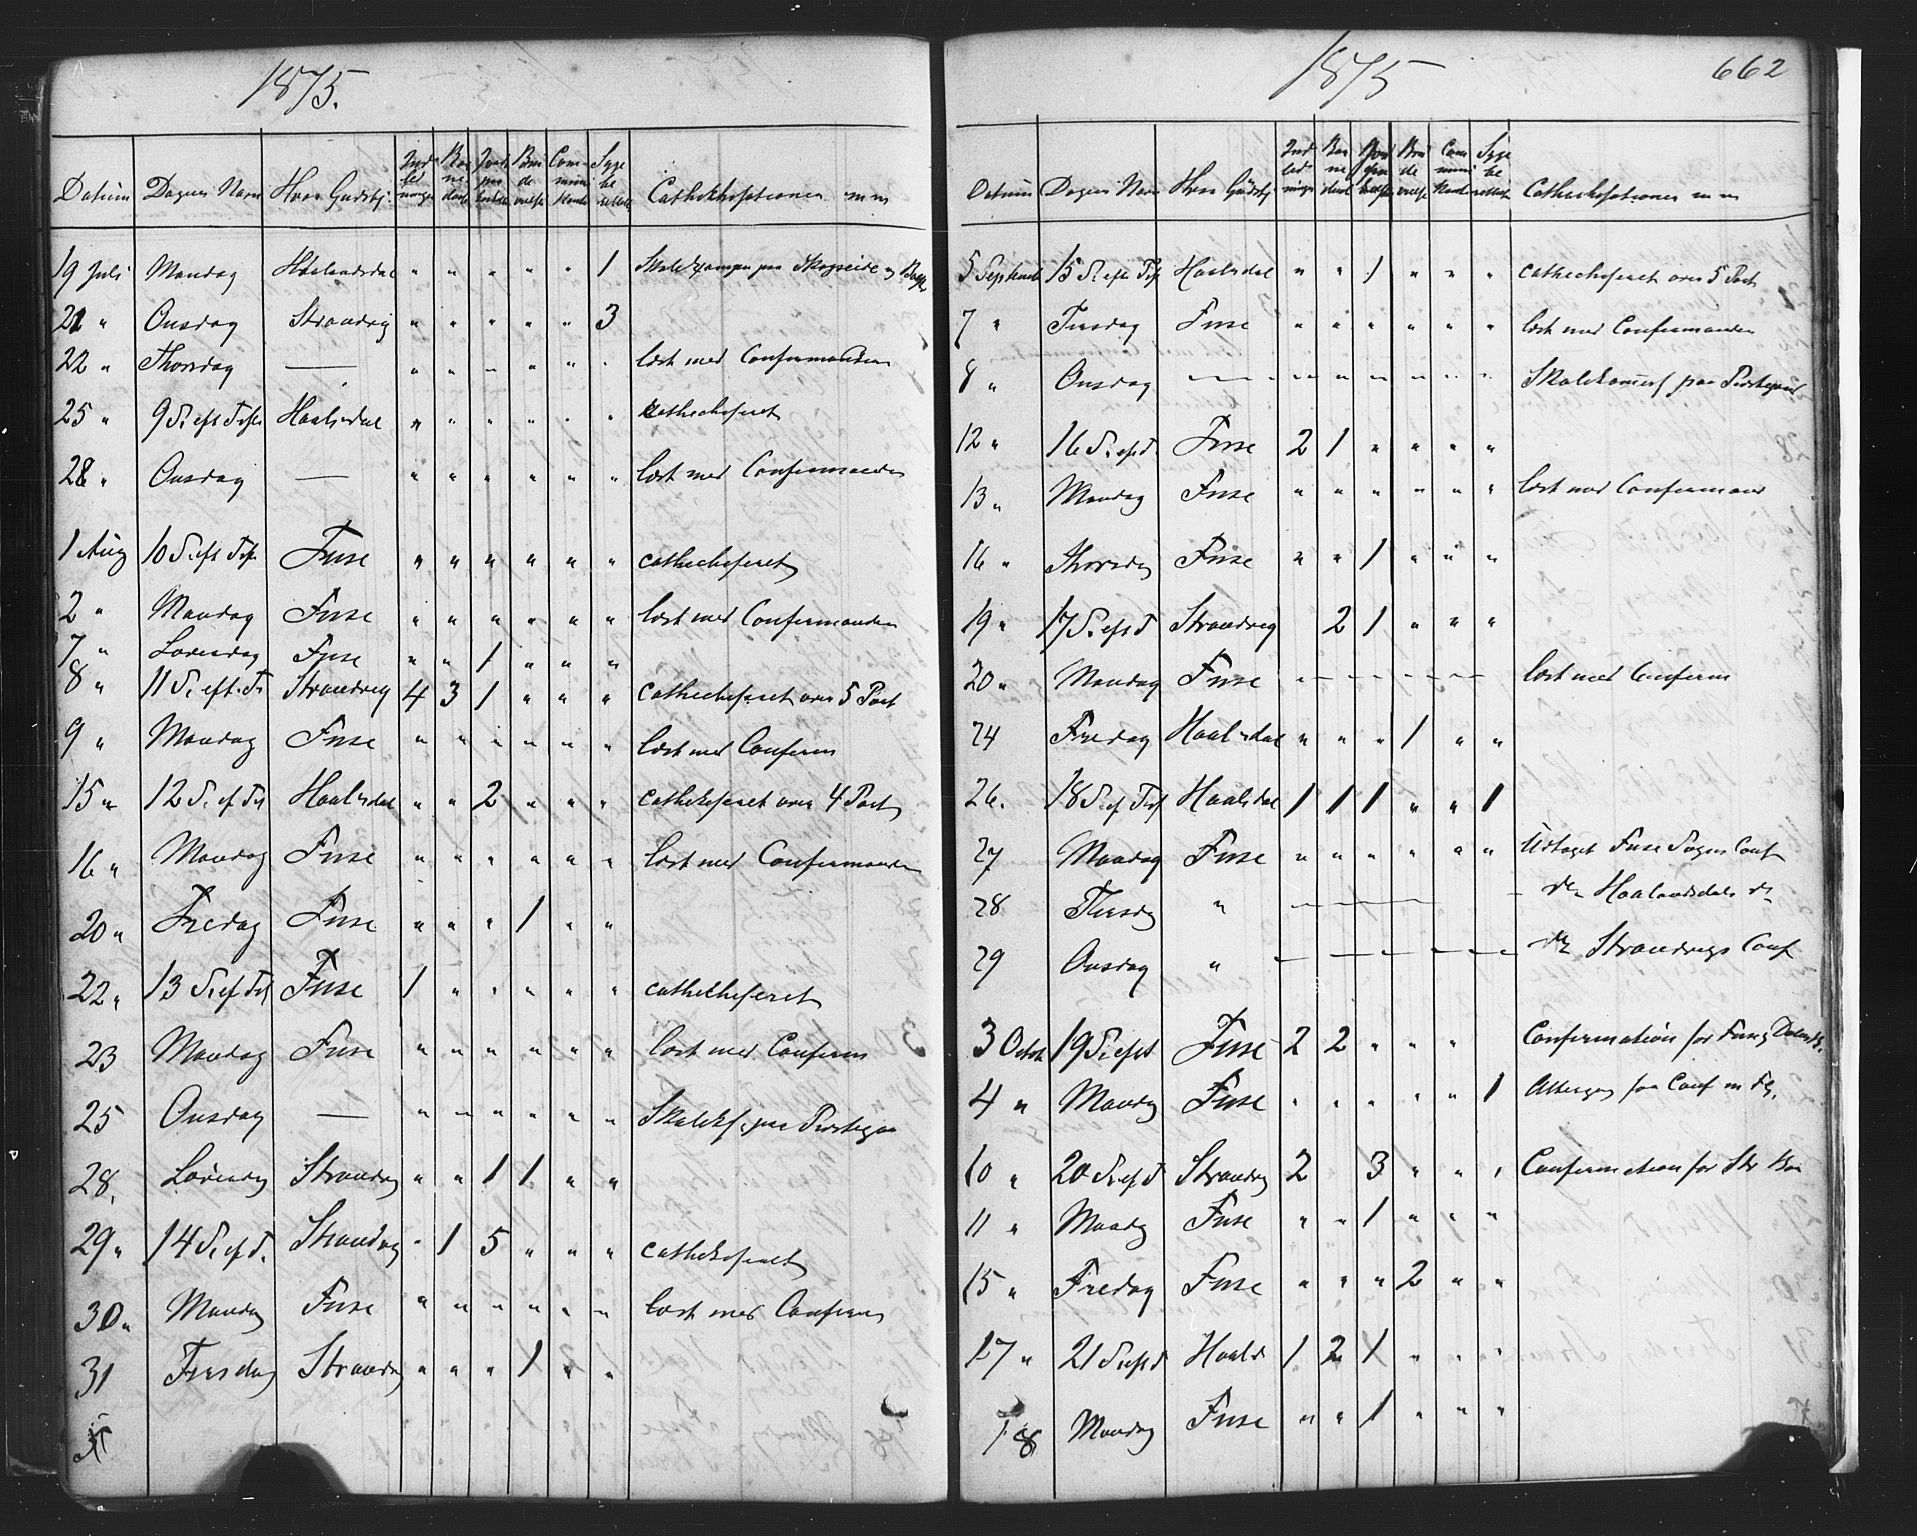 1875.
Datum Dagens Navn Hvor Gudstj: Ind led ninger Bar ne daab Jord paa kastelse Bru de vielse Com- muni kanter Syge be rettelse Cathekhesationer m m
19 Juli Mandag Haalandsdal " " " " " 1 Skoleexamen paa Skogseide og
21 " Onsdag Strandvig " " " " " 3
22 " Thorsdag — " " " " " " læst med Confirmanden
25 " 9 S. eft Trf. Haalsdal " " " " " " cathechiseret
28 " Onsdag — " " " " " " læst med Confirmanden
1 Aug 10 S. eft Trf. Fuse " " " " " " cathechiseret
2 " Mandag Fuse " " " " " " læst med Confirmanden
7 " Løverdag Fuse " " 1 " " "
8 " 11 S. eft. Tr Strandvig 4 3 1 " " " cathechiseret over 5 Part
9 " Mandag Fuse " " " " " " læst med Conferm
15 " 12 S. ef Trf Haalsdal " " 2 " " " cathekiseret over 4 Part
16 " Mandag Fuse " " " " " " læst med Confermanden
20 " Fredag Fuse " " " 1 " "
22 " 13 S. ef Trf Fuse 1 " " " " " cathecheseret
23 Mandag Fuse " " " " " " læst med Conferm
25 Onsdag — " " " " " " Skoleks. paa Prestegaa
28, Løverdag Strandvig " " 1 1 " "
29 " 14 S. ef T. Strandvig " 1 5 " " " cathekiseret
30 " Mandag Fuse " " " " " " læst med Conferm
31 Tirsdag Strandvig " " " 1 " "
1875 662
Datum Dagens Navn Hvor Gudstj Ind led ninger Bar ne daab Jord paa kastelse Bru de vielse Com muni kanter Syge be rettelse Cathechesationer m m
5 Septemb 15 S. eft Trf Haalsdal " " 1 " " " cathechiseret over 5 Part
7 " Tirsdag Fuse " " " " " " læst med Confermanden
8 " Onsdag — " — " — " — Skoleksamen paa Prestegaard
12 " 16 S. eft T. Fuse 2 1 " " " "
13 " Mandag Fuse " " " " " " læst med Confermand
16 " Thorsdag Fuse " " 1 " " "
19 " 17 S. eft T Strandvig 2 1 " " "
20 " Mandag Fuse — — — — — — læst med Conferm
24 Fredag Haalsdal " " " 1 " "
26. 18 S. ef Trf Haalsdal 1 1 1 " " 1
27 Mandag Fuse " " " " " " Udtaget Fuse Sogns Conf
28 Tirsdag " — — — — — do Haalandsdals do
29 Onsdag " — — — — — — do Strandvigs Conf
3 Octob 19 S. eft Fuse 2 2 " " " Confirmation for Fuse
4 " Mandag Fuse " " " " " 1 Altergang for Conf m Fl.
10 " 20 S. ef T Strandvig 2 3 " " " Confirmation for Str
11 " Mandg Fuse " " 1 " " "
15 " Fredag Fuse " " " 2 " "
17 " 21 S. eft Haalsd 1 2 1 " " "
18 Mandag Fuse " " 1 " " "